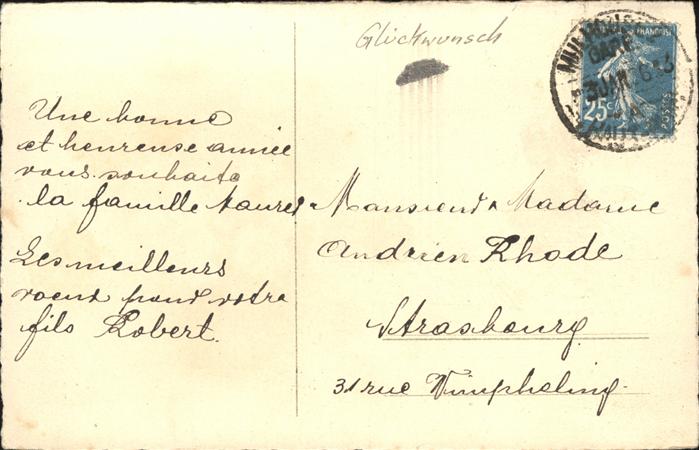 Glückwunsch
MULHOUSE
GARE
3 JAN
FRANÇAISE
25c
POSTES
Une bonne
et heureuse année
vous souhaite
la famille
Les meilleurs
voeux pour votre
fils Robert.
Monsieur & Madame
Andrien Rhode
Strasbourg
31 rue Wimpheling.